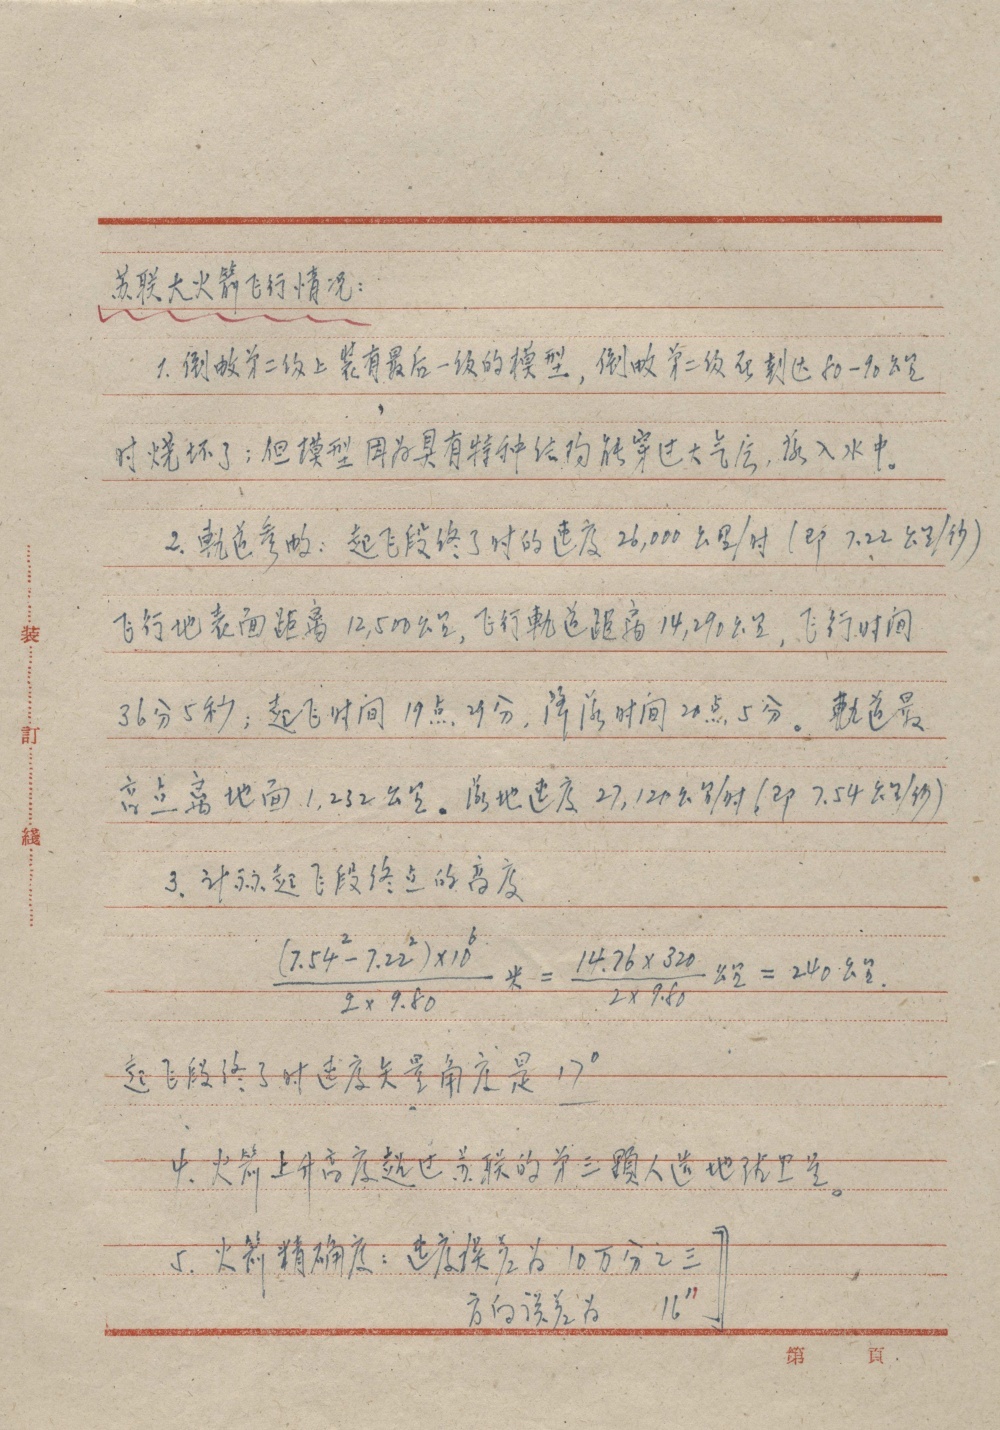 苏联大火箭飞行情况：
1. 倒数第二级上装有最后一级的模型，倒数第二级在到达80-90公里
时烧坏了；但模型因为具有特种结构能穿过大气层，落入水中。
2. 軌道参数：起飞段终了时的速度26,000公里/时（即7.22公里/秒）
飞行地表面距离12,500公里，飞行軌道距离14,290公里，飞行时间
36分5秒；起飞时间19点29分，降落时间20点5分。軌道最
高点离地面1,232公里。落地速度27,120公里/时（即7.54公里/秒）
3. 计标起飞段终点的高度
(7.54²-7.22²)×10⁶ / 2×9.80 米 = 14.76×320 / 2×9.80 公里 = 240公里.
起飞段终了时速度矢量角度是17°
4. 火箭上升高度超过苏联的第三顆人造地球卫星。
5. 火箭精确度：速度误差为10万分之三
方向误差为 16"
装訂綫
第 頁